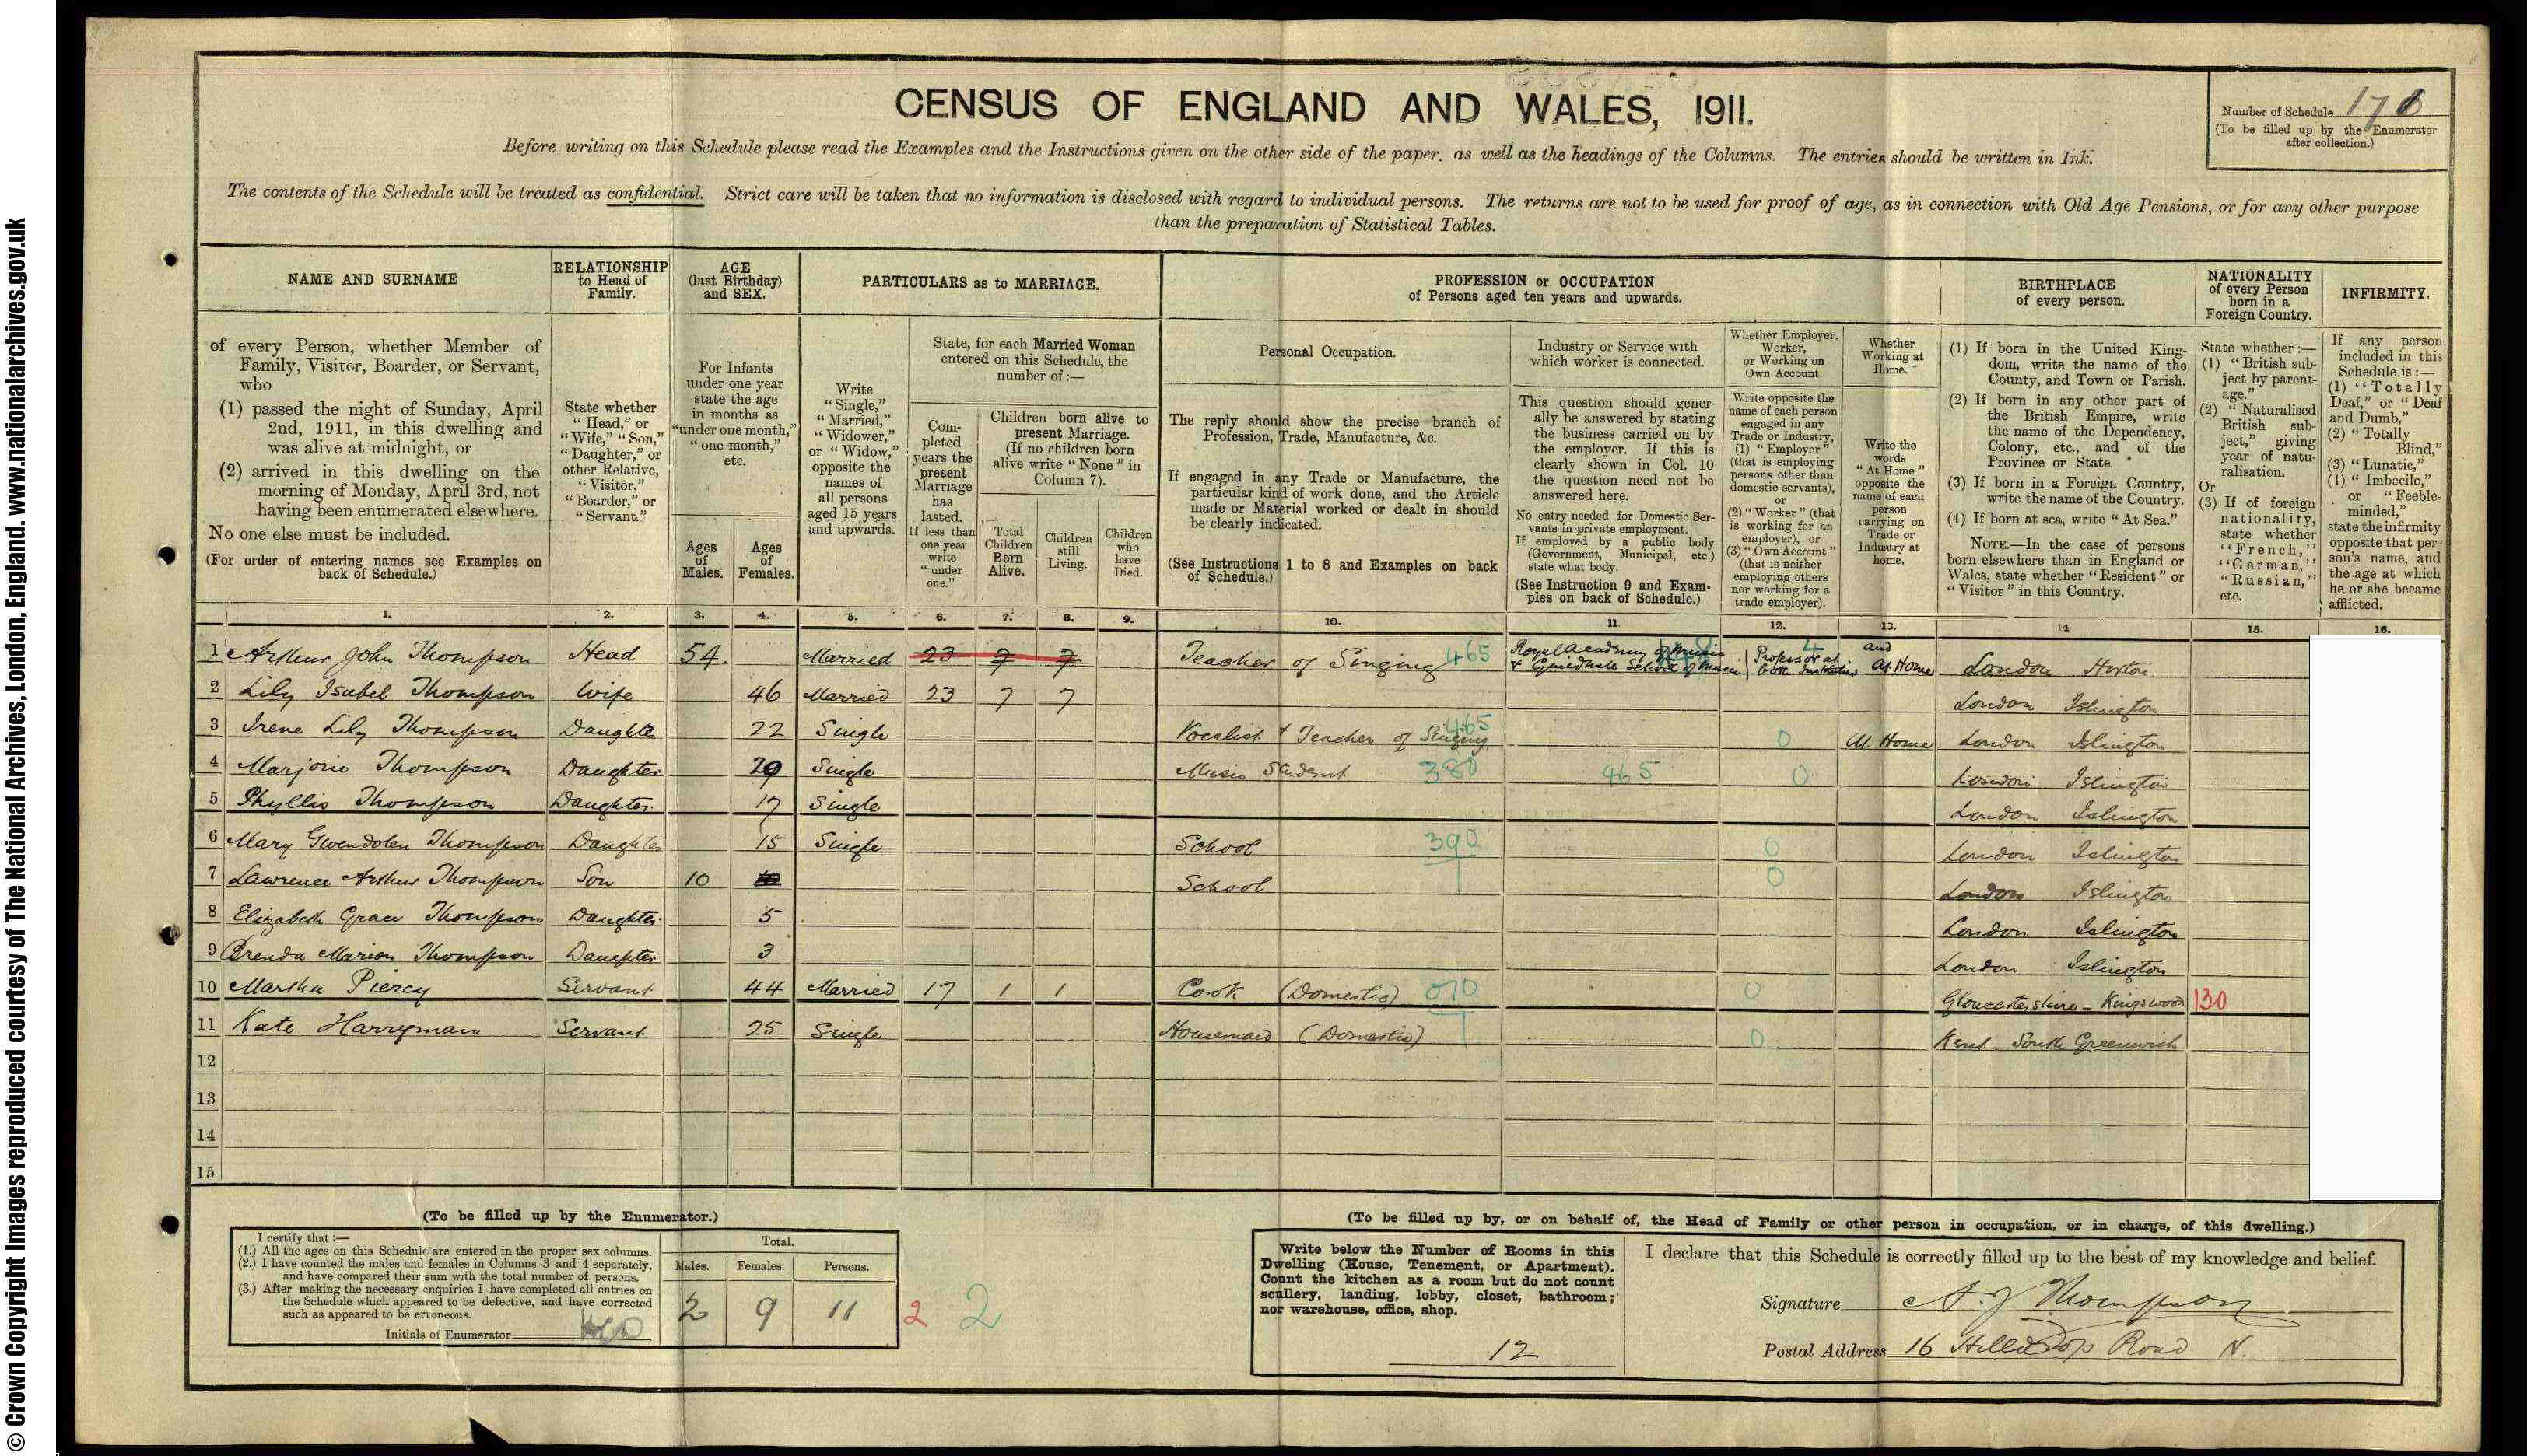 © Crown Copyright Images reproduced courtesy of The National Archives, London, England. www.nationalarchives.gov.uk
CENSUS OF ENGLAND AND WALES, 1911.
Number of Schedule
(To be filled up by the Enumerator
after collection.)
Before writing on this Schedule please read the Examples and the Instructions given on the other side of the paper, as well as the headings of the Columns. The entries should be written in Ink.
The contents of the Schedule will be treated as confidential. Strict care will be taken that no information is disclosed with regard to individual persons. The returns are not to be used for proof of age, as in connection with Old Age Pensions, or for any other purpose
than the preparation of Statistical Tables.
NAME AND SURNAME
of every Person, whether Member of
Family, Visitor, Boarder, or Servant,
who
(1) passed the night of Sunday, April
2nd, 1911, in this dwelling and
was alive at midnight, or
(2) arrived in this dwelling on the
morning of Monday, April 3rd, not
having been enumerated elsewhere.
No one else must be included.
(For order of entering names see Examples on
back of Schedule.)
RELATIONSHIP
to Head of
Family.
State whether
"Head," or
"Wife," "Son,"
"Daughter," or
other Relative,
"Visitor,"
"Boarder," or
"Servant."
AGE
(last Birthday)
and SEX.
For Infants
under one year
state the age
in months as
"under one month,"
"one month,"
etc.
Ages
of
Males.
Ages
of
Females.
PARTICULARS as to MARRIAGE.
Write
"Single,"
"Married,"
"Widower,"
or "Widow,"
opposite the
names of
all persons
aged 15 years
and upwards.
State, for each Married Woman
entered on this Schedule, the
number of :—
Com-
pleted
years the
present
Marriage
has
lasted.
If less than
one year
write
"under
one."
Children born alive to
present Marriage.
(If no children born
alive write "None" in
Column 7).
Total
Children
Born
Alive.
Children
still
Living.
Children
who
have
Died.
PROFESSION or OCCUPATION
of Persons aged ten years and upwards.
Personal Occupation.
The reply should show the precise branch of
Profession, Trade, Manufacture, &c.
If engaged in any Trade or Manufacture, the
particular kind of work done, and the Article
made or Material worked or dealt in should
be clearly indicated.
(See Instructions 1 to 8 and Examples on back
of Schedule.)
Industry or Service with
which worker is connected.
This question should gener-
ally be answered by stating
the business carried on by
the employer. If this is
clearly shown in Col. 10
the question need not be
answered here.
No entry needed for Domestic Ser-
vants in private employment.
If employed by a public body
(Government, Municipal, etc.)
state what body.
(See Instruction 9 and Exam-
ples on back of Schedule.)
Whether Employer,
Worker,
or Working on
Own Account.
Write opposite the
name of each person
engaged in any
Trade or Industry,
(1) "Employer"
(that is employing
persons other than
domestic servants),
or
(2) "Worker" (that
is working for an
employer), or
(3) "Own Account"
(that is neither
employing others
nor working for a
trade employer).
Whether
Working at
Home.
Write the
words
"At Home"
opposite the
name of each
person
carrying on
Trade or
Industry at
home.
BIRTHPLACE
of every person.
(1) If born in the United King-
dom, write the name of the
County, and Town or Parish.
(2) If born in any other part of
the British Empire, write
the name of the Dependency,
Colony, etc., and of the
Province or State.
(3) If born in a Foreign Country,
write the name of the Country.
(4) If born at sea, write "At Sea."
NOTE.—In the case of persons
born elsewhere than in England or
Wales, state whether "Resident" or
"Visitor" in this Country.
NATIONALITY
of every Person
born in a
Foreign Country.
State whether :—
(1) "British sub-
ject by parent-
age."
(2) "Naturalised
British sub-
ject," giving
year of natu-
ralisation.
Or
(3) If of foreign
nationality,
state whether
"French,"
"German,"
"Russian,"
etc.
INFIRMITY.
If any person
included in this
Schedule is :—
(1) "Totally
Deaf," or "Deaf
and Dumb,"
(2) "Totally
Blind,"
(3) "Lunatic,"
(4) "Imbecile,"
or "Feeble-
minded,"
state the infirmity
opposite that per-
son's name, and
the age at which
he or she became
afflicted.
1. 2. 3. 4. 5. 6. 7. 8. 9. 10. 11. 12. 13. 14 15. 16.
1 Arthur John Thompson Head 54. Married 23 7 7 Teacher of Singing 465 Royal Academy of Music + Guildhall School of Music Professor at both Institutions 4 and At Home London Hoxton
2 Lily Isabel Thompson Wife 46 Married 23 7 7 London Islington
3 Irene Lily Thompson Daughter 22 Single Vocalist + Teacher of Singing 465 0 At Home London Islington
4 Marjorie Thompson Daughter 20 Single Music Student 380 465 0 London Islington
5 Phyllis Thompson Daughter 17 Single London Islington
6 Mary Gwendolen Thompson Daughter 15 Single School 390 0 London Islington
7 Lawrence Arthur Thompson Son 10 School 0 London Islington
8 Elizabeth Grace Thompson Daughter 5 London Islington
9 Brenda Marion Thompson Daughter 3 London Islington
10 Martha Piercy Servant 44 Married 17 1 1 Cook (Domestic) 070 0 Gloucestershire - Kingswood 130
11 Kate Harryman Servant 25 Single Housemaid (Domestic) 0 Kent. South Greenwich
12
13
14
15
(To be filled up by the Enumerator.)
I certify that :—
(1.) All the ages on this Schedule are entered in the proper sex columns.
(2.) I have counted the males and females in Columns 3 and 4 separately,
and have compared their sum with the total number of persons.
(3.) After making the necessary enquiries I have completed all entries on
the Schedule which appeared to be defective, and have corrected
such as appeared to be erroneous.
Initials of Enumerator
Total.
Males. Females. Persons.
2 9 11 2 2
(To be filled up by, or on behalf of, the Head of Family or other person in occupation, or in charge, of this dwelling.)
Write below the Number of Rooms in this
Dwelling (House, Tenement, or Apartment).
Count the kitchen as a room but do not count
scullery, landing, lobby, closet, bathroom;
nor warehouse, office, shop.
12
I declare that this Schedule is correctly filled up to the best of my knowledge and belief.
Signature A. J Thompson
Postal Address 16 Hilldrop Road N.